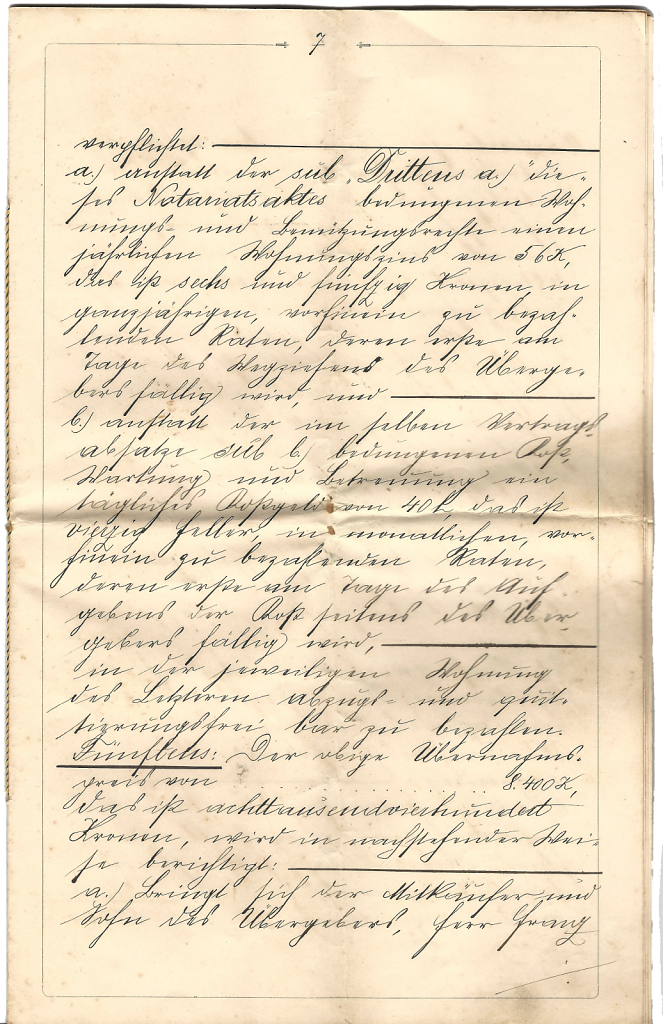 7
verpflichtet:
a.) anstatt der sub „Drittens a.)" die-
ses Notariatsaktes bedungenen Woh-
nungs- und Benützungsrechte einen
jährlichen Wohnungszins von 56 K,
das ist sechs und fünfzig Kronen, in
ganzjährigen, vorhinein zu bezah-
lenden Raten, deren erste am
Tage des Wegziehens des Überge-
bers fällig wird, und
b.) anstatt der im selben Vertrags-
absatze sub b.) bedungenen Kost,
Wartung und Betreuung ein
tägliches Kostgeld von 40 h, das ist
vierzig Heller, in monatlichen, vor-
hinein zu bezahlenden Raten,
deren erste am Tage des Auf-
gebens der Kost seitens des Über-
gebers fällig wird,
in der jeweiligen Wohnung
des Letzteren abzugs- und quit-
tierungsfrei bar zu bezahlen.
Fünftens: Der obige Übernahms-
preis von . . . . . . . . . . . . . . . . 8.400 K,
das ist achttausendvierhundert
Kronen, wird in nachstehender Wei-
se berichtigt:
a.) Bringt sich der Mitkäufer und
Sohn des Übergebers, Herr Franz